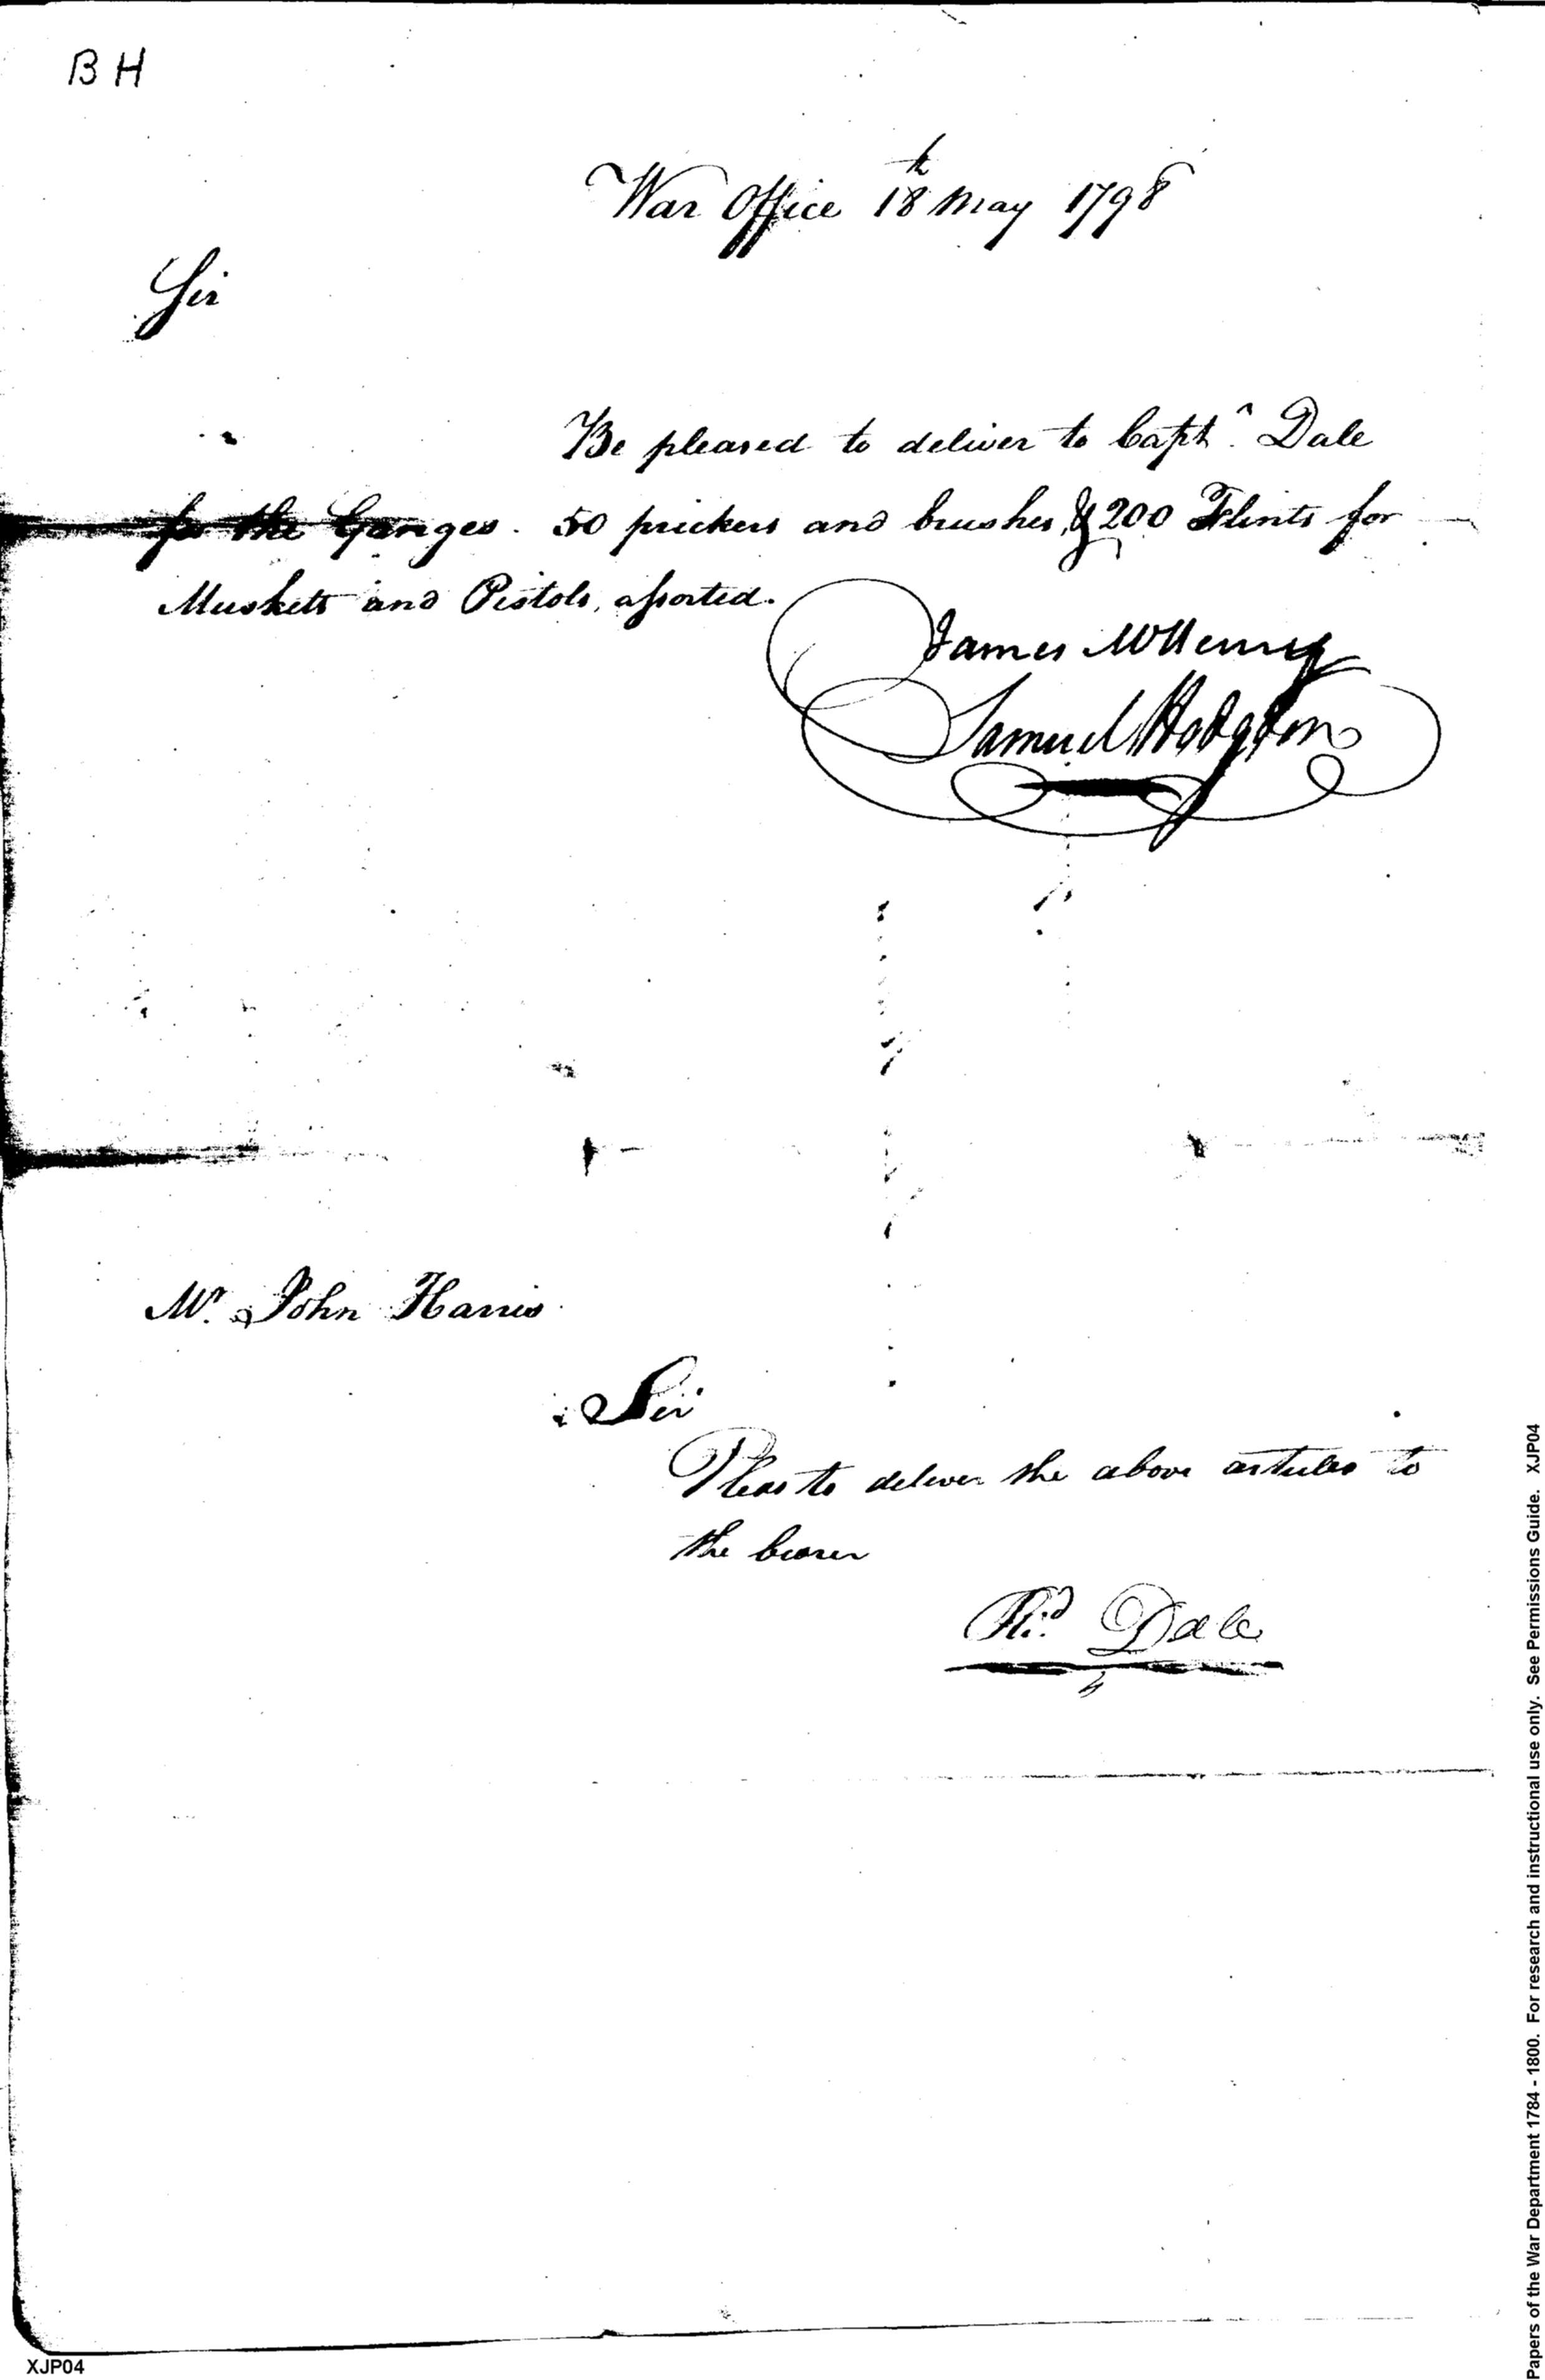 BH
War Office 18th May 1798
Sir
Be pleased to deliver to Captn. Dale
for the Ganges. 50 prickers and brushes, & 200 Flints for
Muskets and Pistols, assorted.
James McHenry
Samuel Hodgdon
Mr. John Harris
Sir
Pleas to deliver the above articles to
the bearer
Rid. Dale
XJP04
Papers of the War Department 1784 - 1800. For research and instructional use only. See Permissions Guide. XJP04